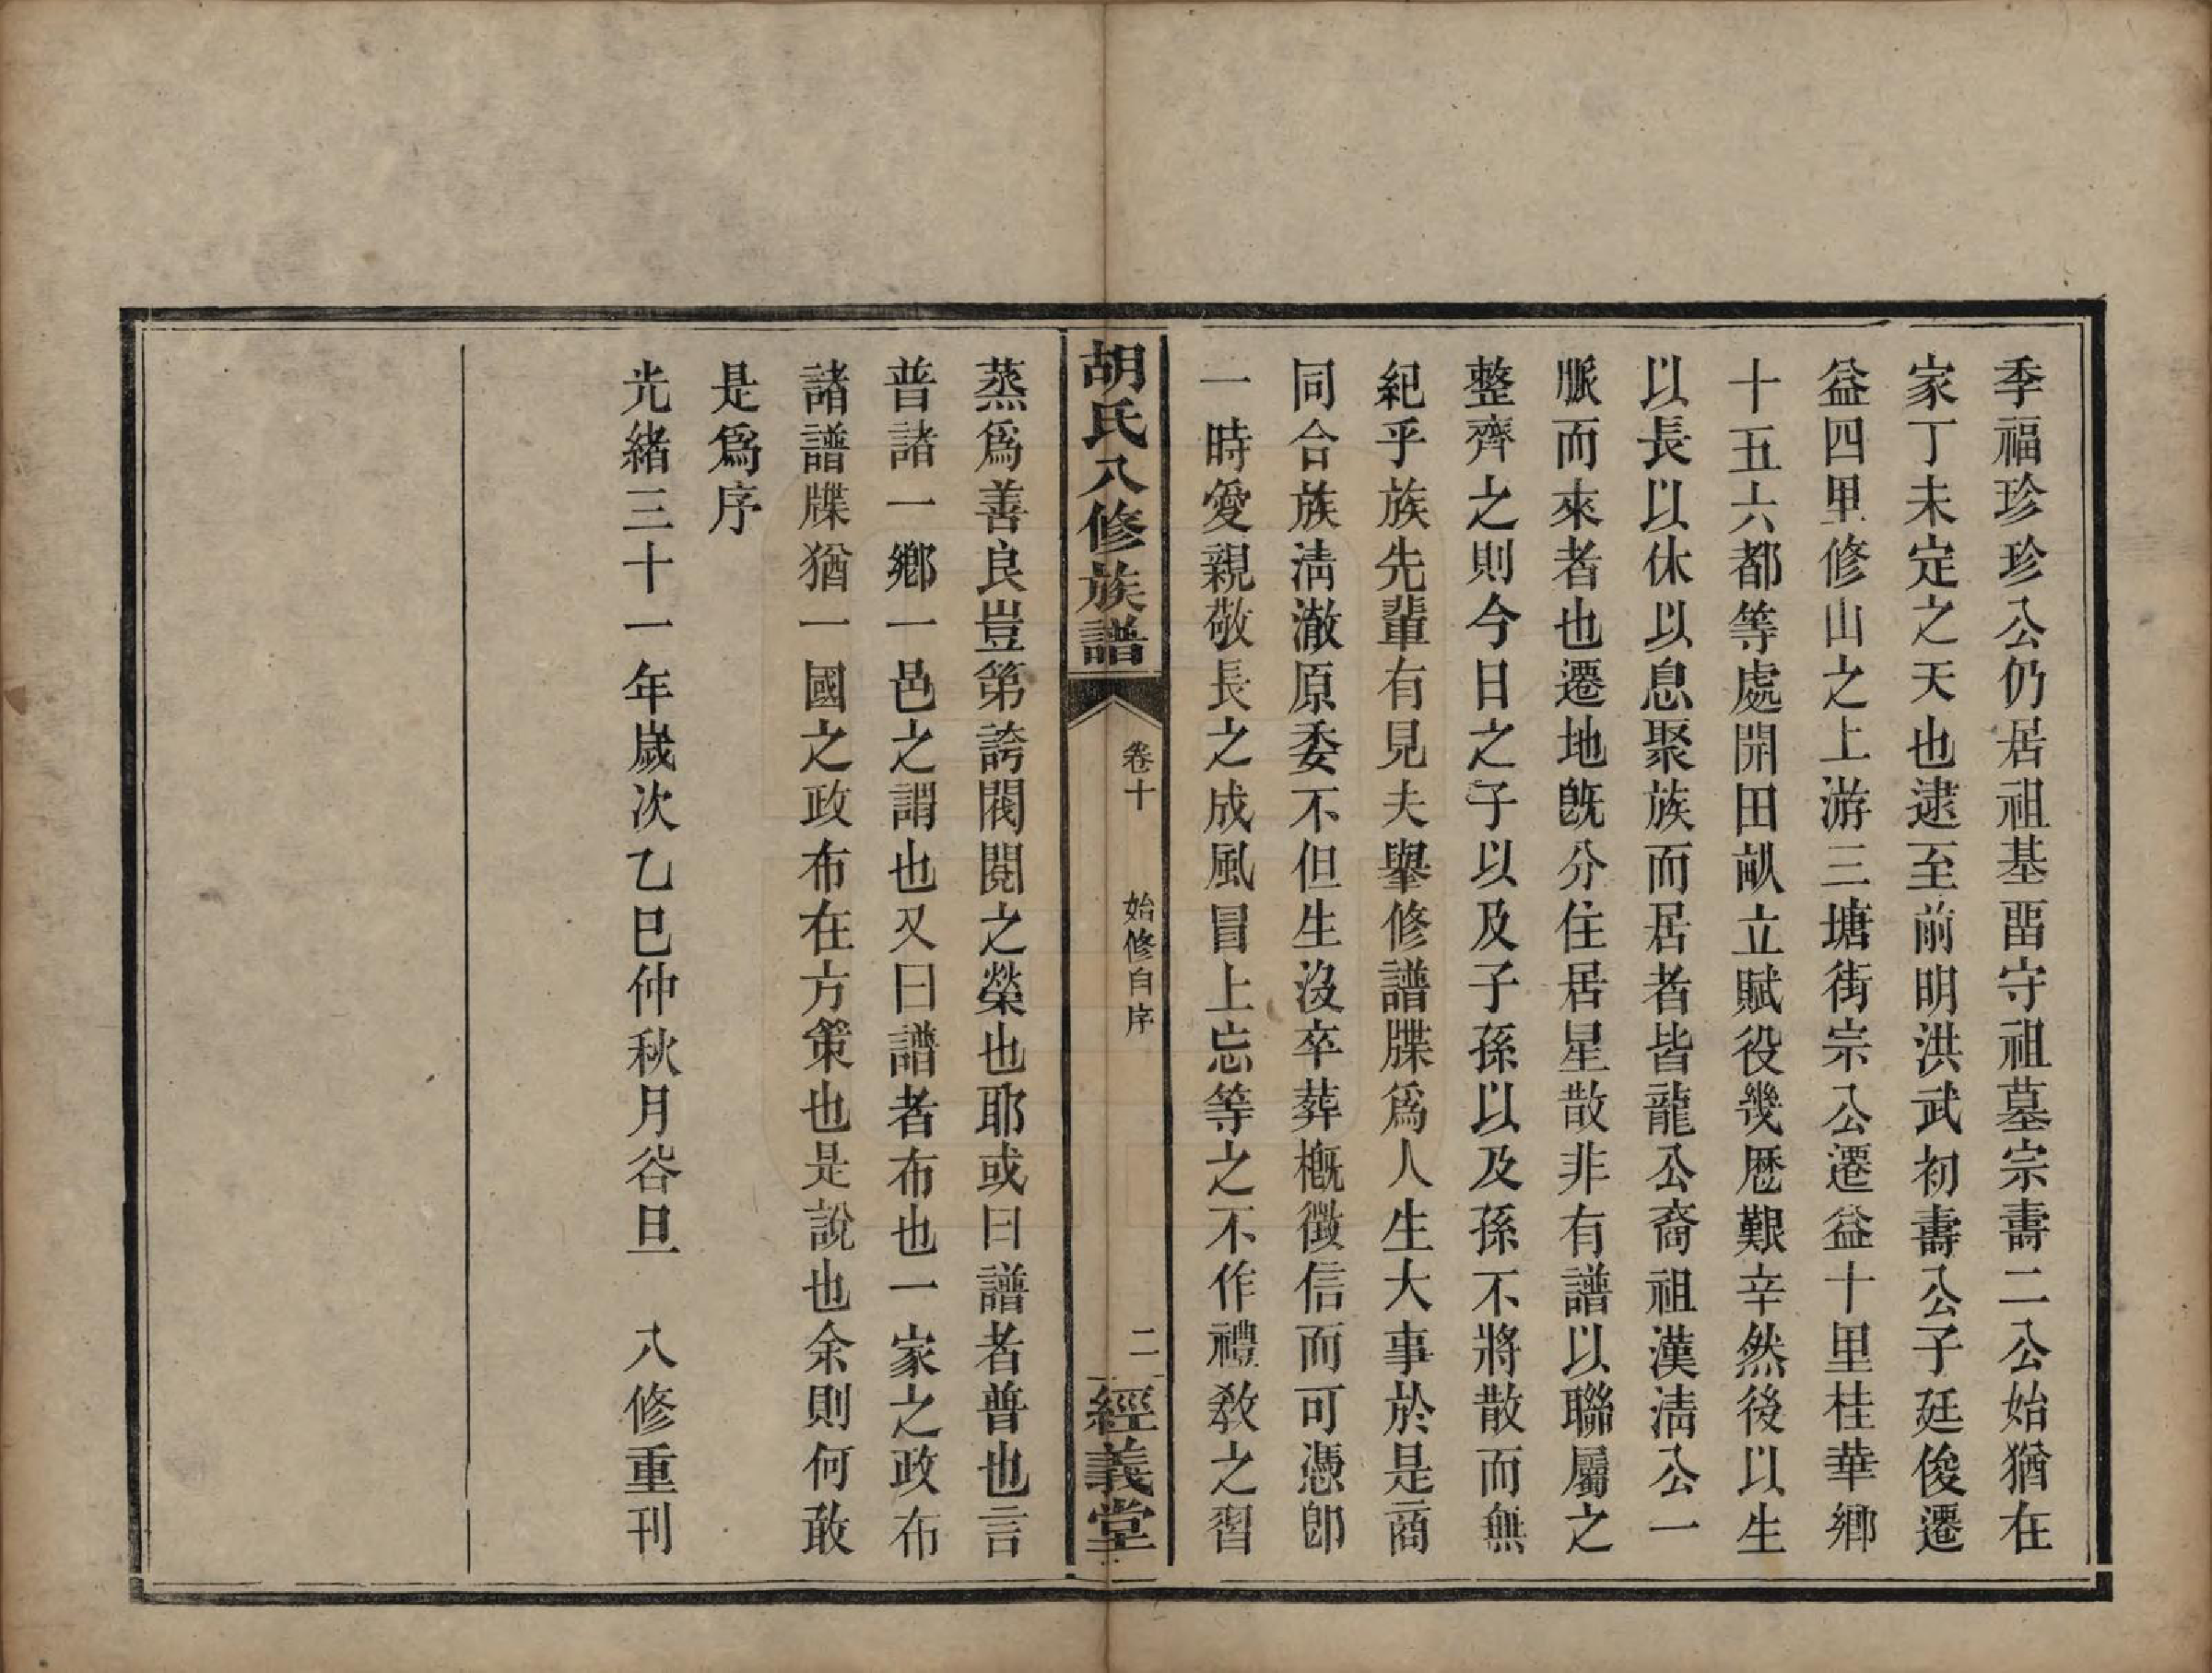 季福珍珍公仍居祖基畱守祖墓宗壽二公始猶在
家丁未定之天也逮至前明洪武初壽公子廷俊遷
益四里修山之上游三塘街宗公遷益十里桂華鄉
十五六都等處開田畝立賦役幾厯艱辛然後以生
以長以休以息聚族而居者皆龍公裔祖漢淸公一
脈而來者也遷地旣分住居星散非有譜以聯屬之
整齊之則今日之子以及子孫以及孫不將散而無
紀乎族先輩有見夫舉修譜牒爲人生大事於是商
同合族淸澈原委不但生沒卒葬槪徵信而可憑卽
一時愛親敬長之成風冒上忘等之不作禮敎之習
胡氏八修族譜
卷十
始修自序
二
經義堂
蒸爲善良豈第誇閥閱之榮也耶或曰譜者普也言
普諸一鄉一邑之謂也又曰譜者布也一家之政布
諸譜牒猶一國之政布在方策也是說也余則何敢
是爲序
光緒三十一年歲次乙巳仲秋月谷旦　八修重刊